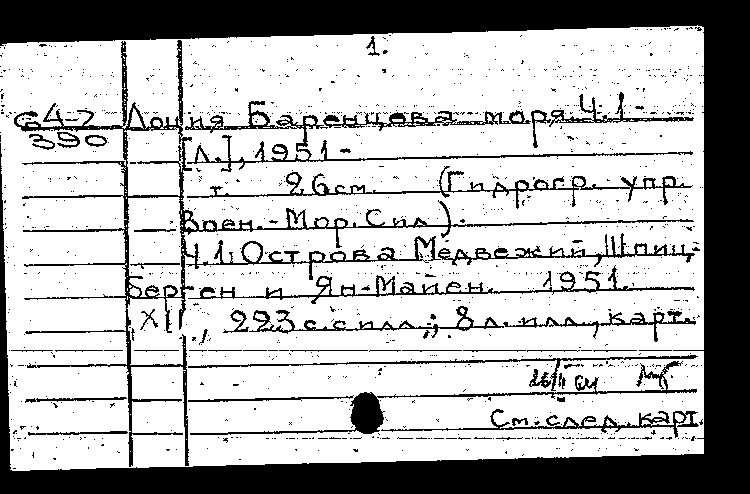 1.
G4-2 Лоция Баренцова моря. Ч.1-
390
[Л.], 1951-
т. 26 см. (Гидрогр. упр.
Воен.-Мор. Сил).
Ч.1: Острова Медвежий, Шпиц-
берген и Ян-Майен. 1951.
XII, 223 с. с илл.; 8 л. илл., карт.
См. след. карт.